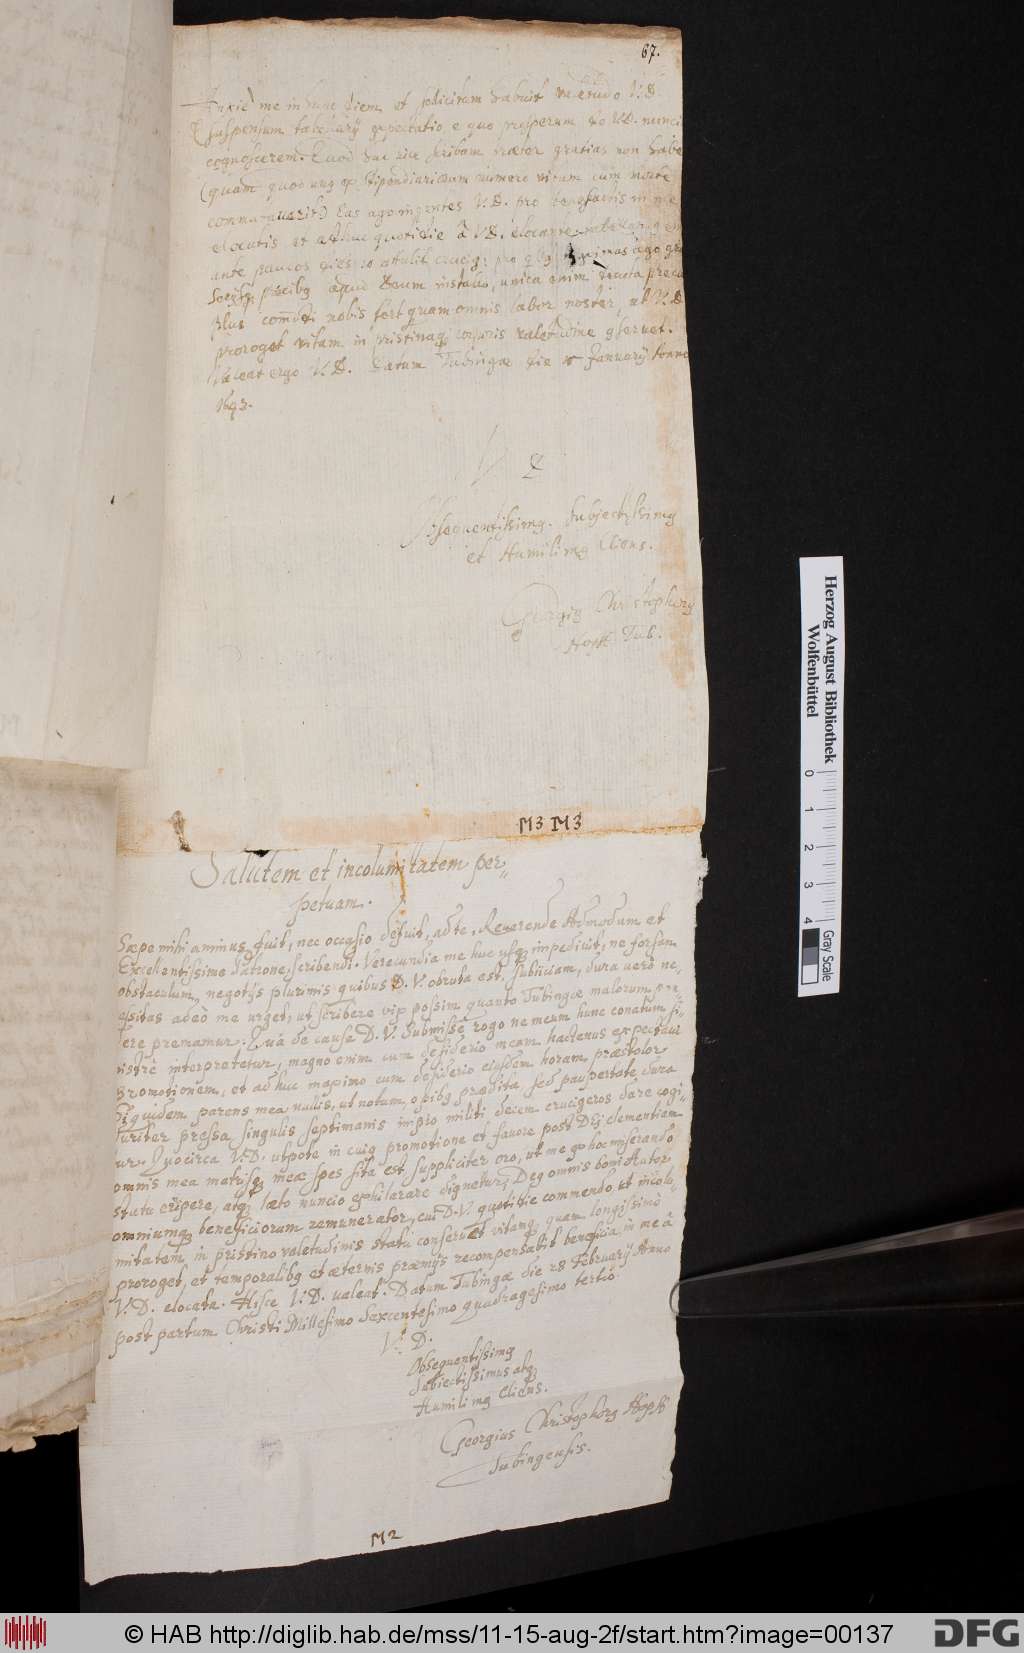 67.
me in hunc diem et solicitum habuit V.D.
suspensum tabellarij expectatio, e quo prosperum de V.D. nunci
cognoscerem. Quod huc scribam praeter gratias non habe
(quam quod unus ex stipendiariorum numero vitam cum morte
commutaverit) Eas ago ingentes V.D. pro benefactis in me
elocatis et adhuc quotidie à V.D.
ante paucos dies 10 attulit crucig: pro quibus maximas ago gra
precibus apud Deum instabo, unica enim devota preca
plus nobis fert quam omnis labor noster, ut V.D.
proroget vitam in pristinaque corporis valetudine conservet.
Valeat ergo V.D. Datum Tubingae die Januarij Anno
1643.
V D
Obsequentissimus. subjectissimus
et Humilimus Cliens.
Georgius Christophorus
Hopff Tub.
M3 M3
Salutem et incolumitatem per-
petuam.
Saepe mihi animus fuit, nec occasio defuit, ad te, Reverende Admodum et
Excellentissime Patrone, scribendi. Verecundia me huc usque impedivit, ne forsan
obstaculum, negotijs plurimis quibus D.V. obruta est, subijciam, dura verò ne-
cessitas adeò me urget, ut scribere vix possim quanto Tubingae malorum pon-
dere premamur. Quâ de causa D.V. Submissè rogo ne meum hunc conatum si-
nistrè interpretetur, magno enim cum desiderio meam hactenus expectavi
promotionem, et adhuc maximo cum desiderio ejusdem horam praestolor
Siquidem parens mea nullis, ut notum, opibus praedita, sed paupertate dura
duriter pressa, singulis septimanis impio militi decem crucigeros dare cogi-
tur. Quocirca V.D. utpote in cuius promotione et favore post Dei clementiam
omnis mea matrisque meae spes sita est suppliciter oro, ut me ex hoc miserando
statu eripere, atque laeto nuncio exhilarare dignetur, Deus omnis boni Autor
omniumque beneficiorum remunerator, cui D.V. quotidie commendo et incolu-
mitatem in pristino valetudinis statu conservet vitamque quam longissimè
proroget, et temporalibus et aeternis praemijs recompensabit beneficia, in me à
V.D. elocata. Hisce V.D. valeat. Datum Tubingae die 28 Februarij Anno
post partum Christi Millesimo Sexcentesimo quadragesimo tertio.
V. D.
Obsequentissimus
Subiectissimus atque
Humilimus Cliens.
Georgius Christophorus Hopff
Tubingensis.
M2
Herzog August Bibliothek
Wolfenbüttel
0 1 2 3 4
Gray Scale
© HAB http://diglib.hab.de/mss/11-15-aug-2f/start.htm?image=00137
DFG